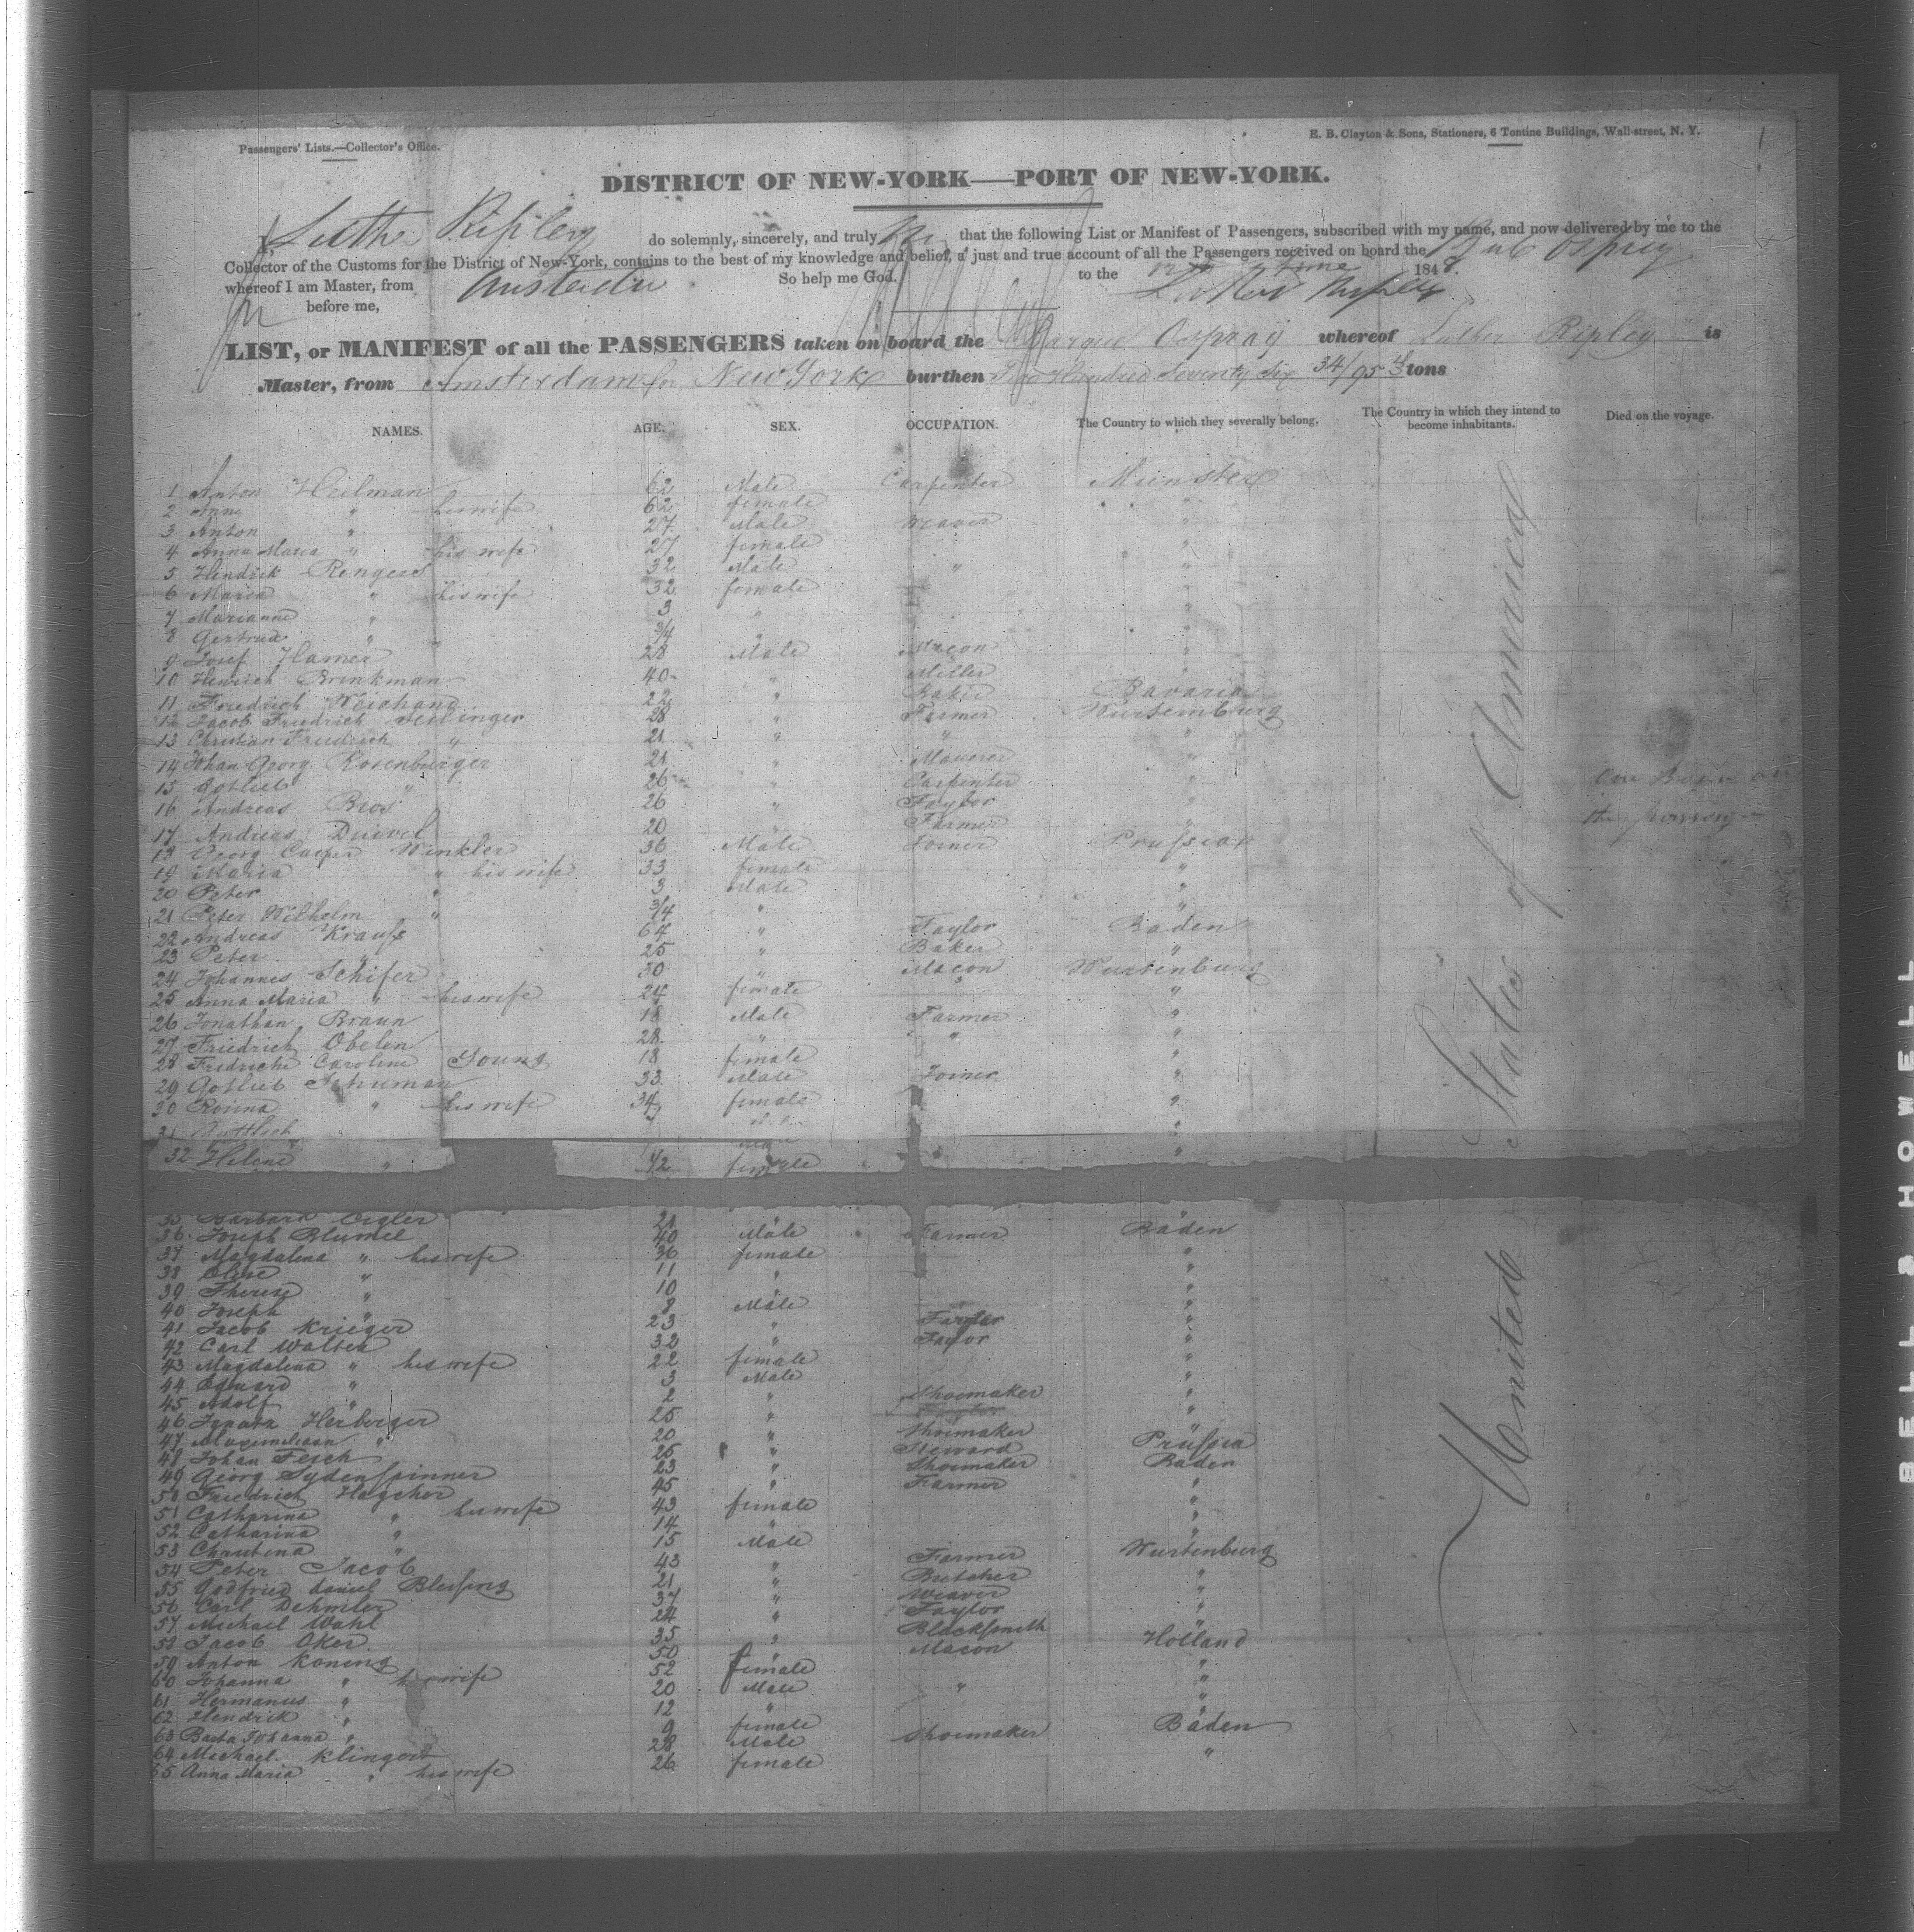 Passengers' Lists.—Collector's Office.
E. B. Clayton & Sons, Stationers, 6 Tontine Buildings, Wall-street, N. Y.
DISTRICT OF NEW-YORK—PORT OF NEW-YORK.
I, Luther Ripley do solemnly, sincerely, and truly that the following List or Manifest of Passengers, subscribed with my name, and now delivered by me to the
Collector of the Customs for the District of New-York, contains to the best of my knowledge and belief, a just and true account of all the Passengers received on board the Osprey
whereof I am Master, from Amsterdam So help me God. to the 1848.
before me, Luther Ripley
LIST, or MANIFEST of all the PASSENGERS taken on board the Barque Ospray whereof Luther Ripley is
Master, from Amsterdam for New York burthen Two Hundred Seventy Six 34/95 tons
NAMES. AGE. SEX. OCCUPATION. The Country to which they severally belong. The Country in which they intend to become inhabitants. Died on the voyage.
1 Anton Heilman 62 Male Carpenter Munster
2 Anna " his wife 62 female "
3 Anton " 27 Male Weaver "
4 Anna Maria " his wife 27 female "
5 Hendrik Rengers 32 Male " "
6 Maria " his wife 32 female "
7 Marianne " 3 " "
8 Gertrud " 3/4 " "
9 Josef Hamer 28 Male Macon "
10 Heinrich Brinkman 40 " Miller "
11 Friedrich Weichand 22 " Baker Bavaria
12 Jacob Friedrich Seilinger 28 " Farmer Wurtemburg
13 Christian Friedrich " 21 " " "
14 Johan Georg Rosenburger 21 " Maurer "
15 Gotlieb " 26 " Carpenter " One Born on
16 Andreas 26 " Taylor "
17 Andreas 20 " Farmer " the passage
18 Georg Casper Winkler 36 Male Joiner Prussia
19 Maria " his wife 33 female "
20 Peter " 3 Male "
21 Peter Wilhelm " 3/4 " "
22 Andreas Krauss 64 " Taylor Baden
23 Peter " 25 " Baker "
24 Johannes Schifer 30 " Macon Wurtenburg
25 Anna Maria " his wife 24 female "
26 Jonathan Braun 18 Male Farmer "
27 Friedrich Obelen 28 " " "
28 Fredriche Caroline Young 18 female "
29 Gotlieb Schuman 33 Male Joiner "
30 Rosina " his wife 34 female "
31 Gottlieb "
32 Helene " 1/2 female "
Barbara 21
36 Joseph Blumel 40 Male Farmer Baden
37 Magdalena " his wife 36 female "
38 Elise " 11 " "
39 Therese " 10 "
40 Joseph " 8 Male "
41 Jacob Krieger 23 " Farmer "
42 Carl Walter 32 " Taylor "
43 Magdalena " his wife 22 female "
44 Eduard " 3 Male "
45 Adolf " 2 " "
46 Ignatz Herberger 25 " Shoemaker "
47 Maximiliaan " 20 " Shoemaker
48 Johan Fesch 25 " Steward Prussia
49 Georg Sydenspinner 23 " Shoemaker Baden
50 Friedrich 45 " Farmer "
51 Catharina " his wife 43 female "
52 Catharina " 14 " "
53 Christina " 15 Male "
54 Peter Jacob 43 " Farmer Wurtenburg
55 Godfried Daniel Blessing 21 " Butcher "
56 Carl Dehmler 37 " Weaver "
57 Michael Wahl 24 " Taylor "
58 Jacob Oker 35 " Blacksmith "
59 Anton Koning 50 " Macon Holland
60 Johanna " his wife 52 female "
61 Hermanus " 20 Male " "
62 Hendrik " 12 " "
63 Johanna " 9 female
64 Michael Klingert 28 Male Shoemaker Baden
65 Anna Maria " his wife 26 female "
United States of America
BELL & HOWELL